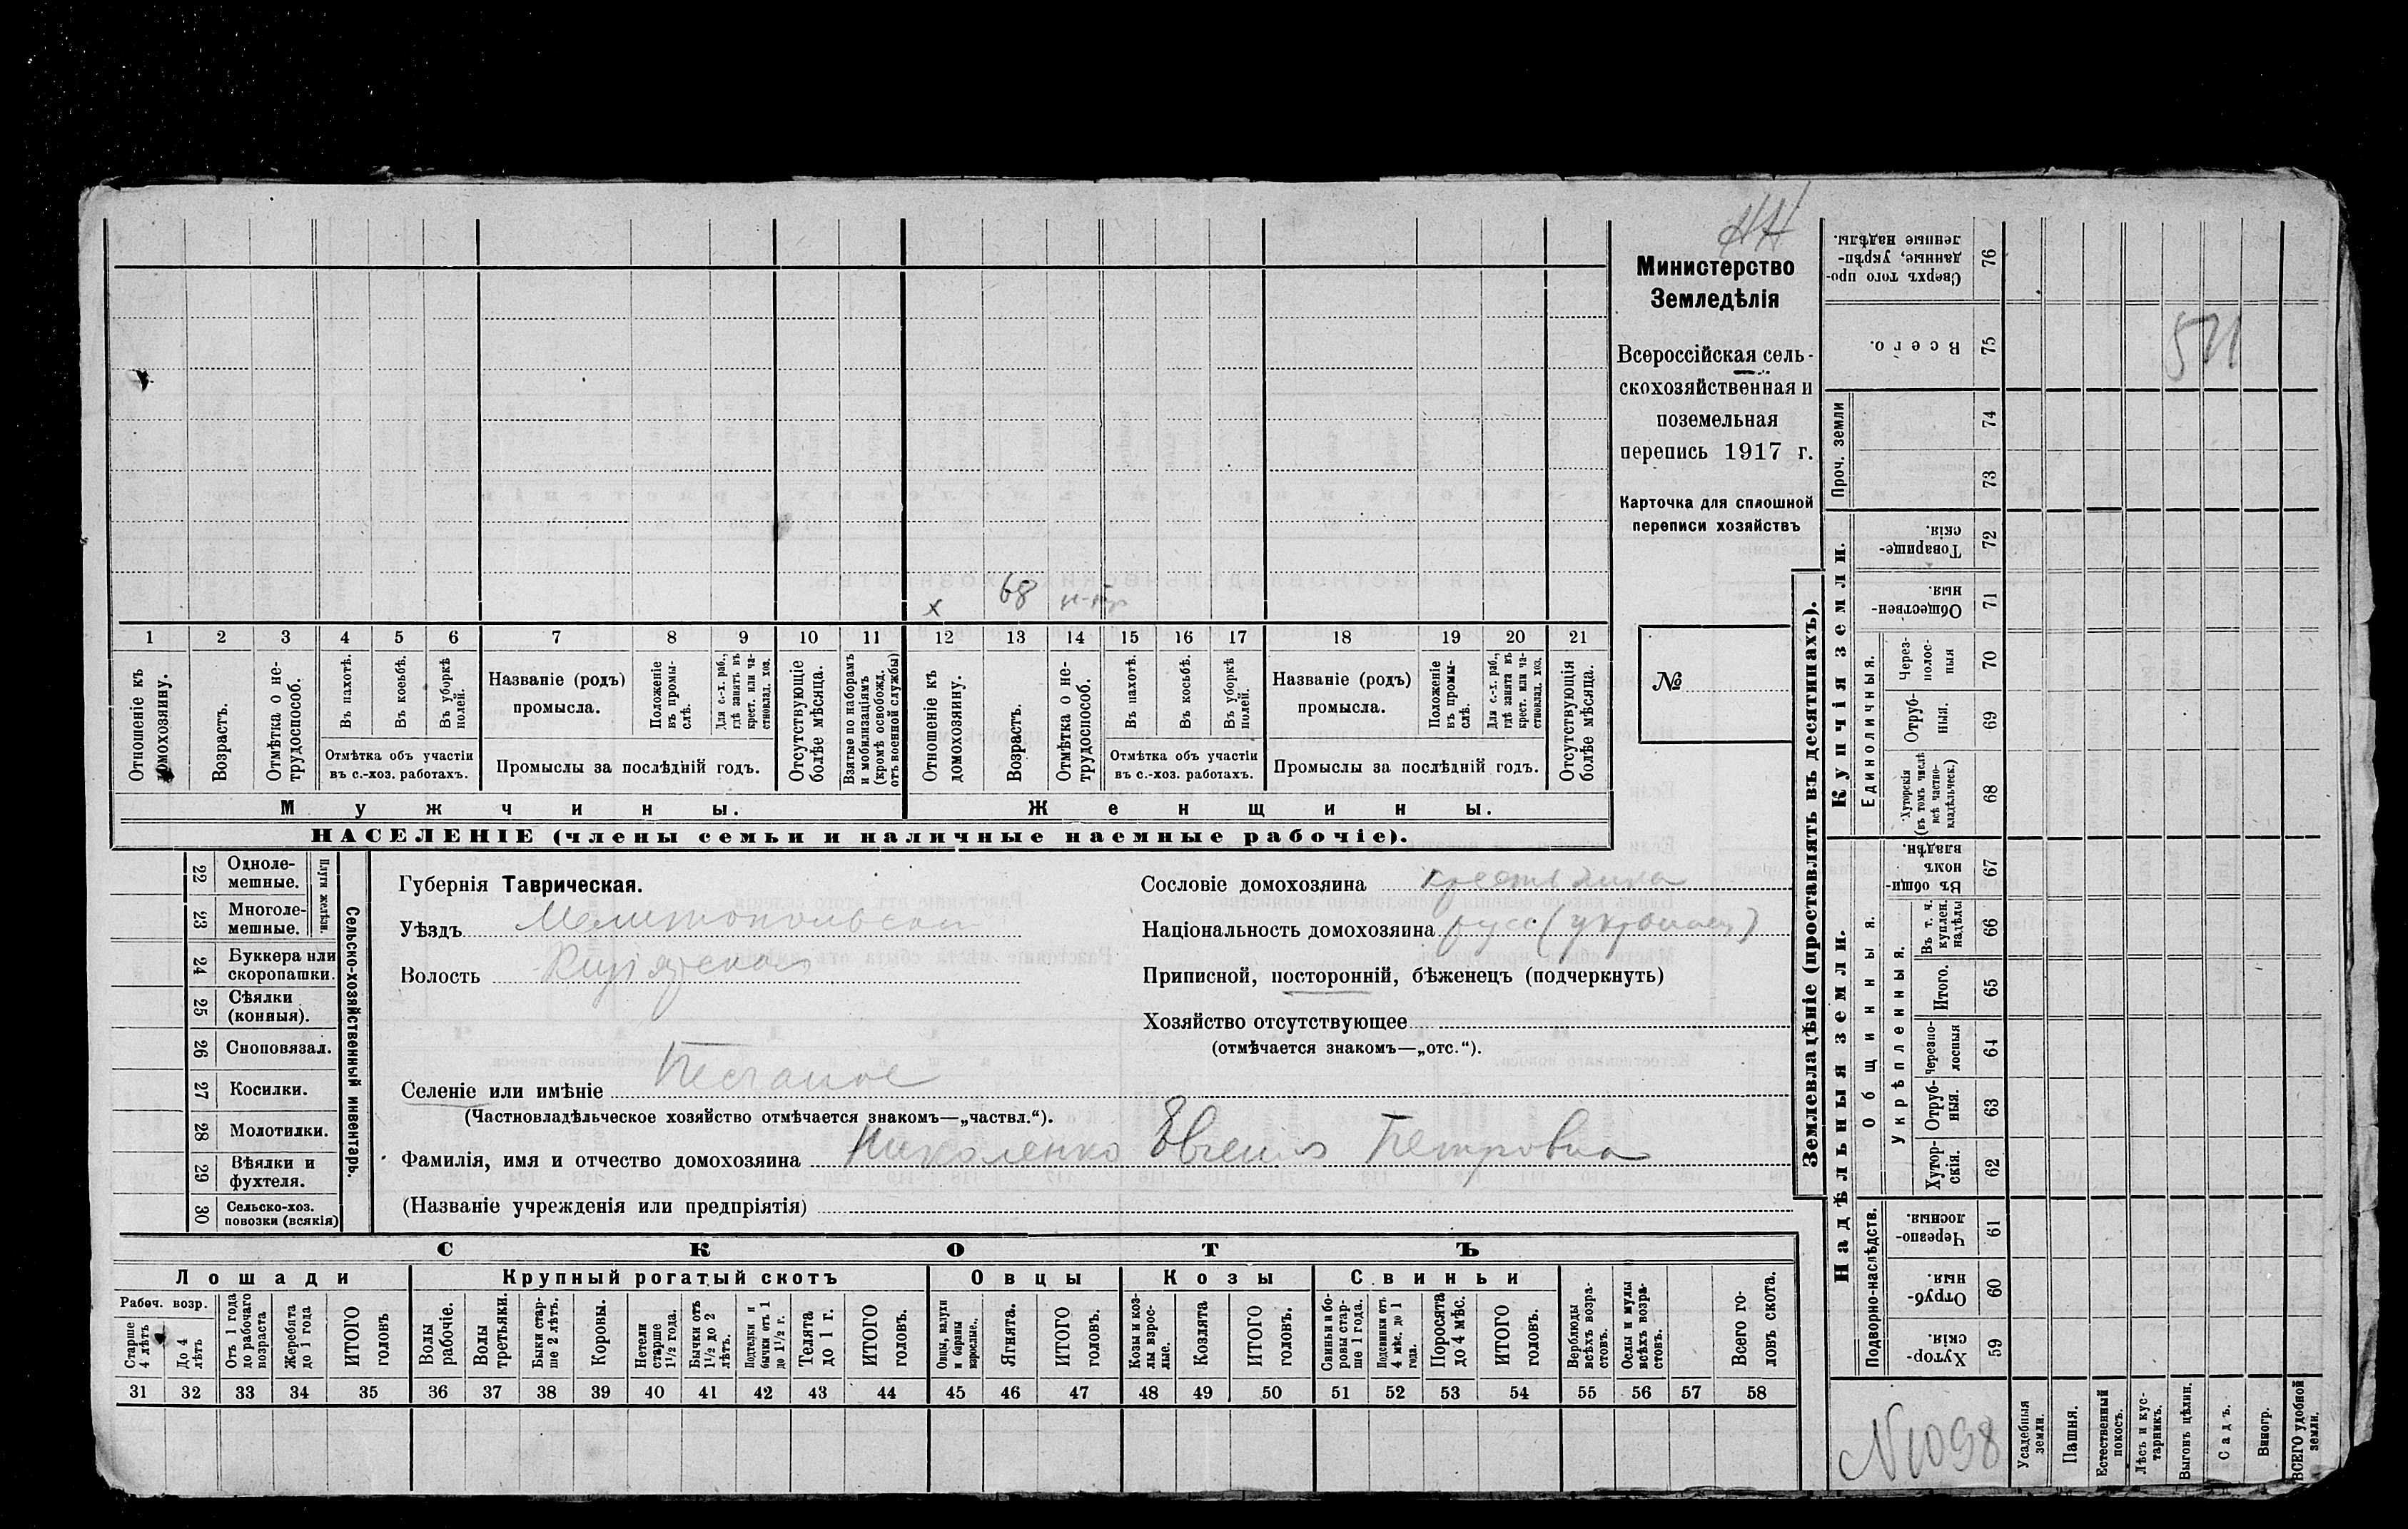 НН
Министерство
Земледѣлія
Всероссійская сель-
скохозяйственная и
поземельная
перепись 1917 г.
Карточка для сплошной
переписи хозяйствъ
№
х 68 н-тр
1 2 3 4 5 6 7 8 9 10 11 12 13 14 15 16 17 18 19 20 21
Отношеніе къ домохозяину.
Возрастъ.
Отмѣтка о не-трудоспособ.
Въ пахотѣ.
Въ косьбѣ.
Въ уборкѣ полей.
Отмѣтка объ участіи
въ с.-хоз. работахъ.
Названіе (родъ)
промысла.
Положеніе въ промы-слѣ.
Для с.-х. раб., гдѣ занятъ въ крест. или ча-стновлад. хоз.
Промыслы за послѣдній годъ.
Отсутствующіе болѣе мѣсяца.
Взятые по наборамъ и мобилизаціямъ (кромѣ освобожд. отъ военной службы)
Отношеніе къ домохозяину.
Возрастъ.
Отмѣтка о не-трудоспособ.
Въ пахотѣ.
Въ косьбѣ.
Въ уборкѣ полей.
Отмѣтка объ участіи
въ с.-хоз. работахъ.
Названіе (родъ)
промысла.
Положеніе въ промы-слѣ.
Для с.-х. раб., гдѣ занята въ крест. или ча-стновлад. хоз.
Промыслы за послѣдній годъ.
Отсутствующія болѣе мѣсяца.
Мужчины. Женщины.
НАСЕЛЕНІЕ (члены семьи и наличные наемные рабочіе).
22 Одноле-мешные.
23 Многоле-мешные.
Плуги желѣзн.
24 Буккера или скоропашки.
25 Сѣялки (конныя).
26 Сноповязал.
27 Косилки.
28 Молотилки.
29 Вѣялки и фухтеля.
30 Сельско-хоз. повозки (всякія)
Сельско-хозяйственный инвентарь.
Губернія Таврическая.
Уѣздъ Мелитопольскій
Волость
Селеніе или имѣніе Песчаное
(Частновладѣльческое хозяйство отмѣчается знакомъ—„частвл.“).
Фамилія, имя и отчество домохозяина Николенко Евгенія Петровна
(Названіе учрежденія или предпріятія)
Сословіе домохозяина крестьянка
Національность домохозяина русс (украинц)
Приписной, посторонній, бѣженецъ (подчеркнуть)
Хозяйство отсутствующее
(отмѣчается знакомъ—„отс.“).
СКОТЪ
Лошади Крупный рогатый скотъ Овцы Козы Свиньи
Рабоч. возр.
Старше 4 лѣтъ
До 4 лѣтъ
Отъ 1 года до рабочаго возраста
Жеребята до 1 года
ИТОГО головъ
Волы рабочіе.
Волы третьяки.
Быки стар-ше 2 лѣтъ.
Коровы.
Нетели старше 1½ года.
Бычки отъ 1½ до 2 лѣтъ.
Подтелки и бычки отъ 1 до 1½ г.
Телята до 1 г.
ИТОГО головъ.
Овцы, валухи и бараны взрослые.
Ягнята.
ИТОГО головъ.
Козы и коз-лы взрос-лые.
Козлята
ИТОГО головъ.
Свиньи и бо-ровы стар-ше 1 года.
Подсвинки отъ 4 мѣс. до 1 года.
Поросята до 4 мѣс.
ИТОГО головъ.
Верблюды всѣхъ возра-стовъ.
Ослы и мулы всѣхъ возра-стовъ.
Всего го-ловъ скота.
31 32 33 34 35 36 37 38 39 40 41 42 43 44 45 46 47 48 49 50 51 52 53 54 55 56 57 58
Землевладѣніе (проставлять въ десятинахъ).
Надѣльныя земли. Купчія земли. Проч. земли
Подворно-наслѣдств.
Общинныя.
Укрѣпленныя.
Единоличныя.
Сверхъ того про-данные, укрѣп-ленные надѣлы. 76
Всего. 75
74
73
Товарище-скія 72
Обществен-ныя 71
Через-полос-ныя 70
Отруб-ныя. 69
Хуторскія (въ томъ числѣ всѣ частно-владѣльческ.) 68
Въ общин-номъ владѣн. 67
Въ т. ч. куплен. надѣлы 66
Итого. 65
Черезпо-лосныя 64
Отруб-ныя. 63
Хутор-скія. 62
Черезпо-лосныя. 61
Отруб-ныя. 60
Хутор-скія. 59
Усадебныя земли.
Пашня.
Естественный покосъ.
Лѣсъ и кус-тарникъ.
Выгонъ цѣлин.
Садъ.
Виногр.
ВСЕГО удобной земли.
N1098